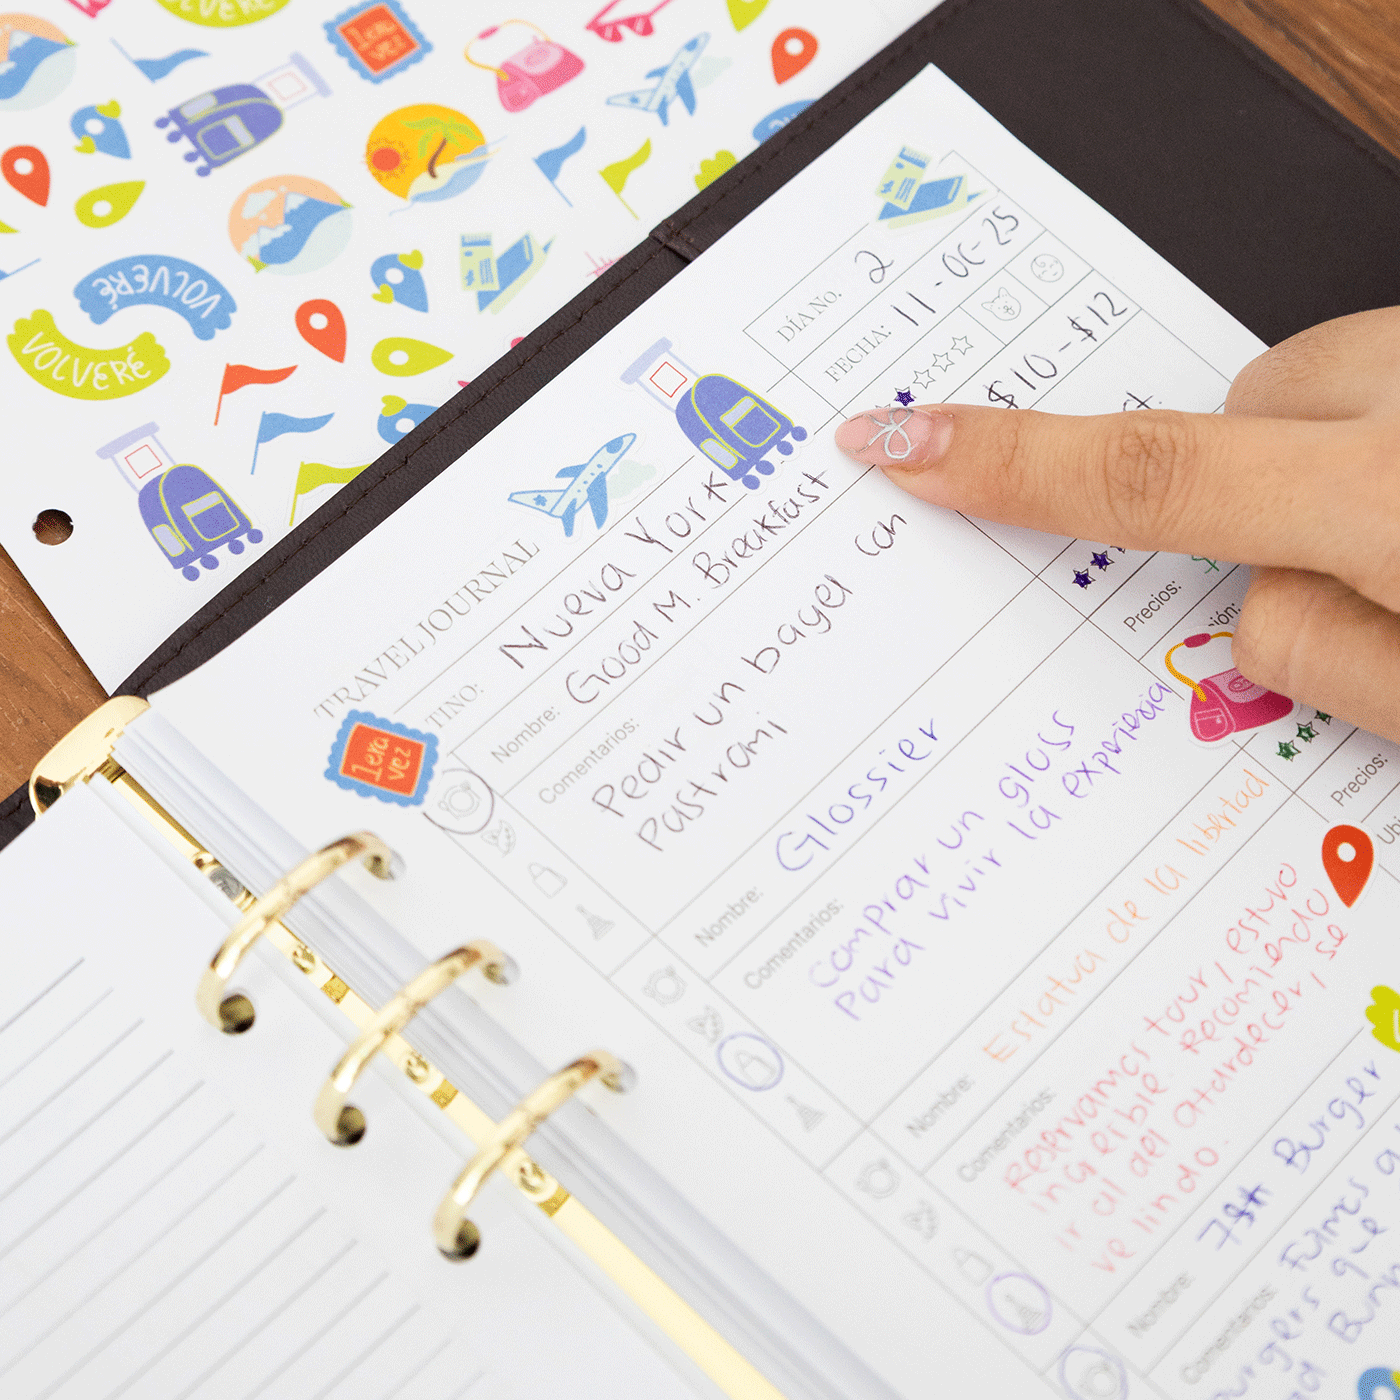 VOLVERÉ
1era
vez
VOLVERÉ
VOLVERÉ
DÍA No. 2
FECHA: 11-OC-25
TRAVEL JOURNAL
TINO: Nueva York
$10-$12
Nombre: Good M. Breakfast
Comentarios:
Pedir un bagel con
Pastrami
1era
vez
Precios:
Nombre: Glossier
Comentarios:
Comprar un gloss
Para vivir la experiencia
Precios:
Nombre: Estatua de la libertad
Comentarios:
Reservamos tour, estuvo
increible. Recomiendo
ir al del atardecer, se
ve lindo.
Nombre: 7th Burger
Comentarios:
Fuimos a
que